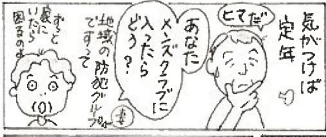 気がつけば
定年
ヒマだ
あなた
メンズクラブに
入ったら
どう？
妻
地域の防犯グループ
ですって
ずっと
家に
いたら
困るのよ